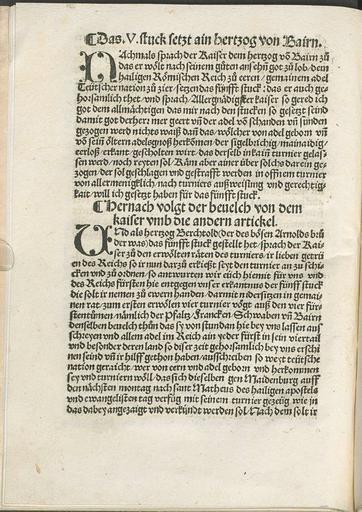 Das .V. stuck setzt ain hertzog von Bairn.
NAchmals sprach der Kaiser dem hertzog vō Bairn zů
das er wölt nach seinem gůten ansehn got zů lob / dem
hailigen Römischen Reich zů eeren / gemainem adel
Teütscher nation zů zier / setzen das fünfft stuck: das er auch ge-
horsamlich thet vnd sprach / Allergnädigster kaiser so gered ich
got dem allmächtigen das mir nach den stucken so gesetzt seind
damit got der herr mer geert vnd der adel vō schanden vnd sünden
gezogen werd nichts waiß dañ das / wölcher von adel geborn vnd
vō sein öltern adelsgnoß herkomen der sigelbrichig / mainaidig /
eerloß / erkant / gescholten wirt / das derselb in kain turnier gelas-
sen werd / noch reyten sol / Kām aber ainer über solchs darein ge-
zogen / der sol geschlagen vnd gestrafft werden in offnem turnier
von aller menigklich / nach turniers außweisung vnd gerechtig-
kait / will ich gesetzt haben für das fünfft stuck.
Hernach volgt der beuelch von dem
kaiser vmb die andern artickel.
VNd als hertzog Berchtold (der des bösen Arnolds brů
der was) das fünfft stuck gestellt het / sprach der Kai-
ser zů den erwölten räten des turniers / ir lieben getrü
en des Reichs so ir nun darzů erkießt seyt den turnier an zů schi-
cken vnd zů ordnen / so antwurten wir eüch hiemit für vns vnd
des Reichs fürsten hie entgegen vnser erkantnus der fünff stuck
die solt ir nemen zů ewern handen / darmit nidersitzen in gemai-
nen rat / zům ersten erwölen vier turnier vögt auß den vier für-
stentümen / nämlich der Pfaltz / Francken / Schwaben vnd Bairn
denselben beuelch thůn das sy von stundan hie bey vns lassen auß
schreyen vnd allem adel im Reich / ain yeder fürst in sein viertail
vnd besonder deren land so diser zeit gehorsamlich bey vns erschi
nen seind vnd ir hilff gethon haben / außschreiben so weyt teütsche
nation geraicht / wer von eern vnd adel geborn vnd herkommen
sey vnd turniern wöll / das sich dieselben gen Maidenburg auff
den nächsten montag nach sant Matheus des hailigen apostels
vnd ewangelisten tag verfüg mit seinem turnier gezeüg wie in
das dabey angezaigt vnd verkündt werden sol / Nach dem solt ir